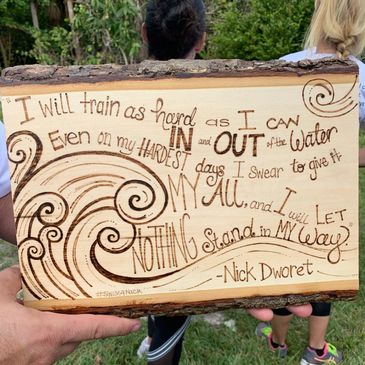 "I will train as hard as I can
IN and OUT of the Water
Even on my HARDEST days I swear to give it
MY ALL, and I will LET
NOTHING Stand in MY Way."
-Nick Dworet
#SWIM4NICK